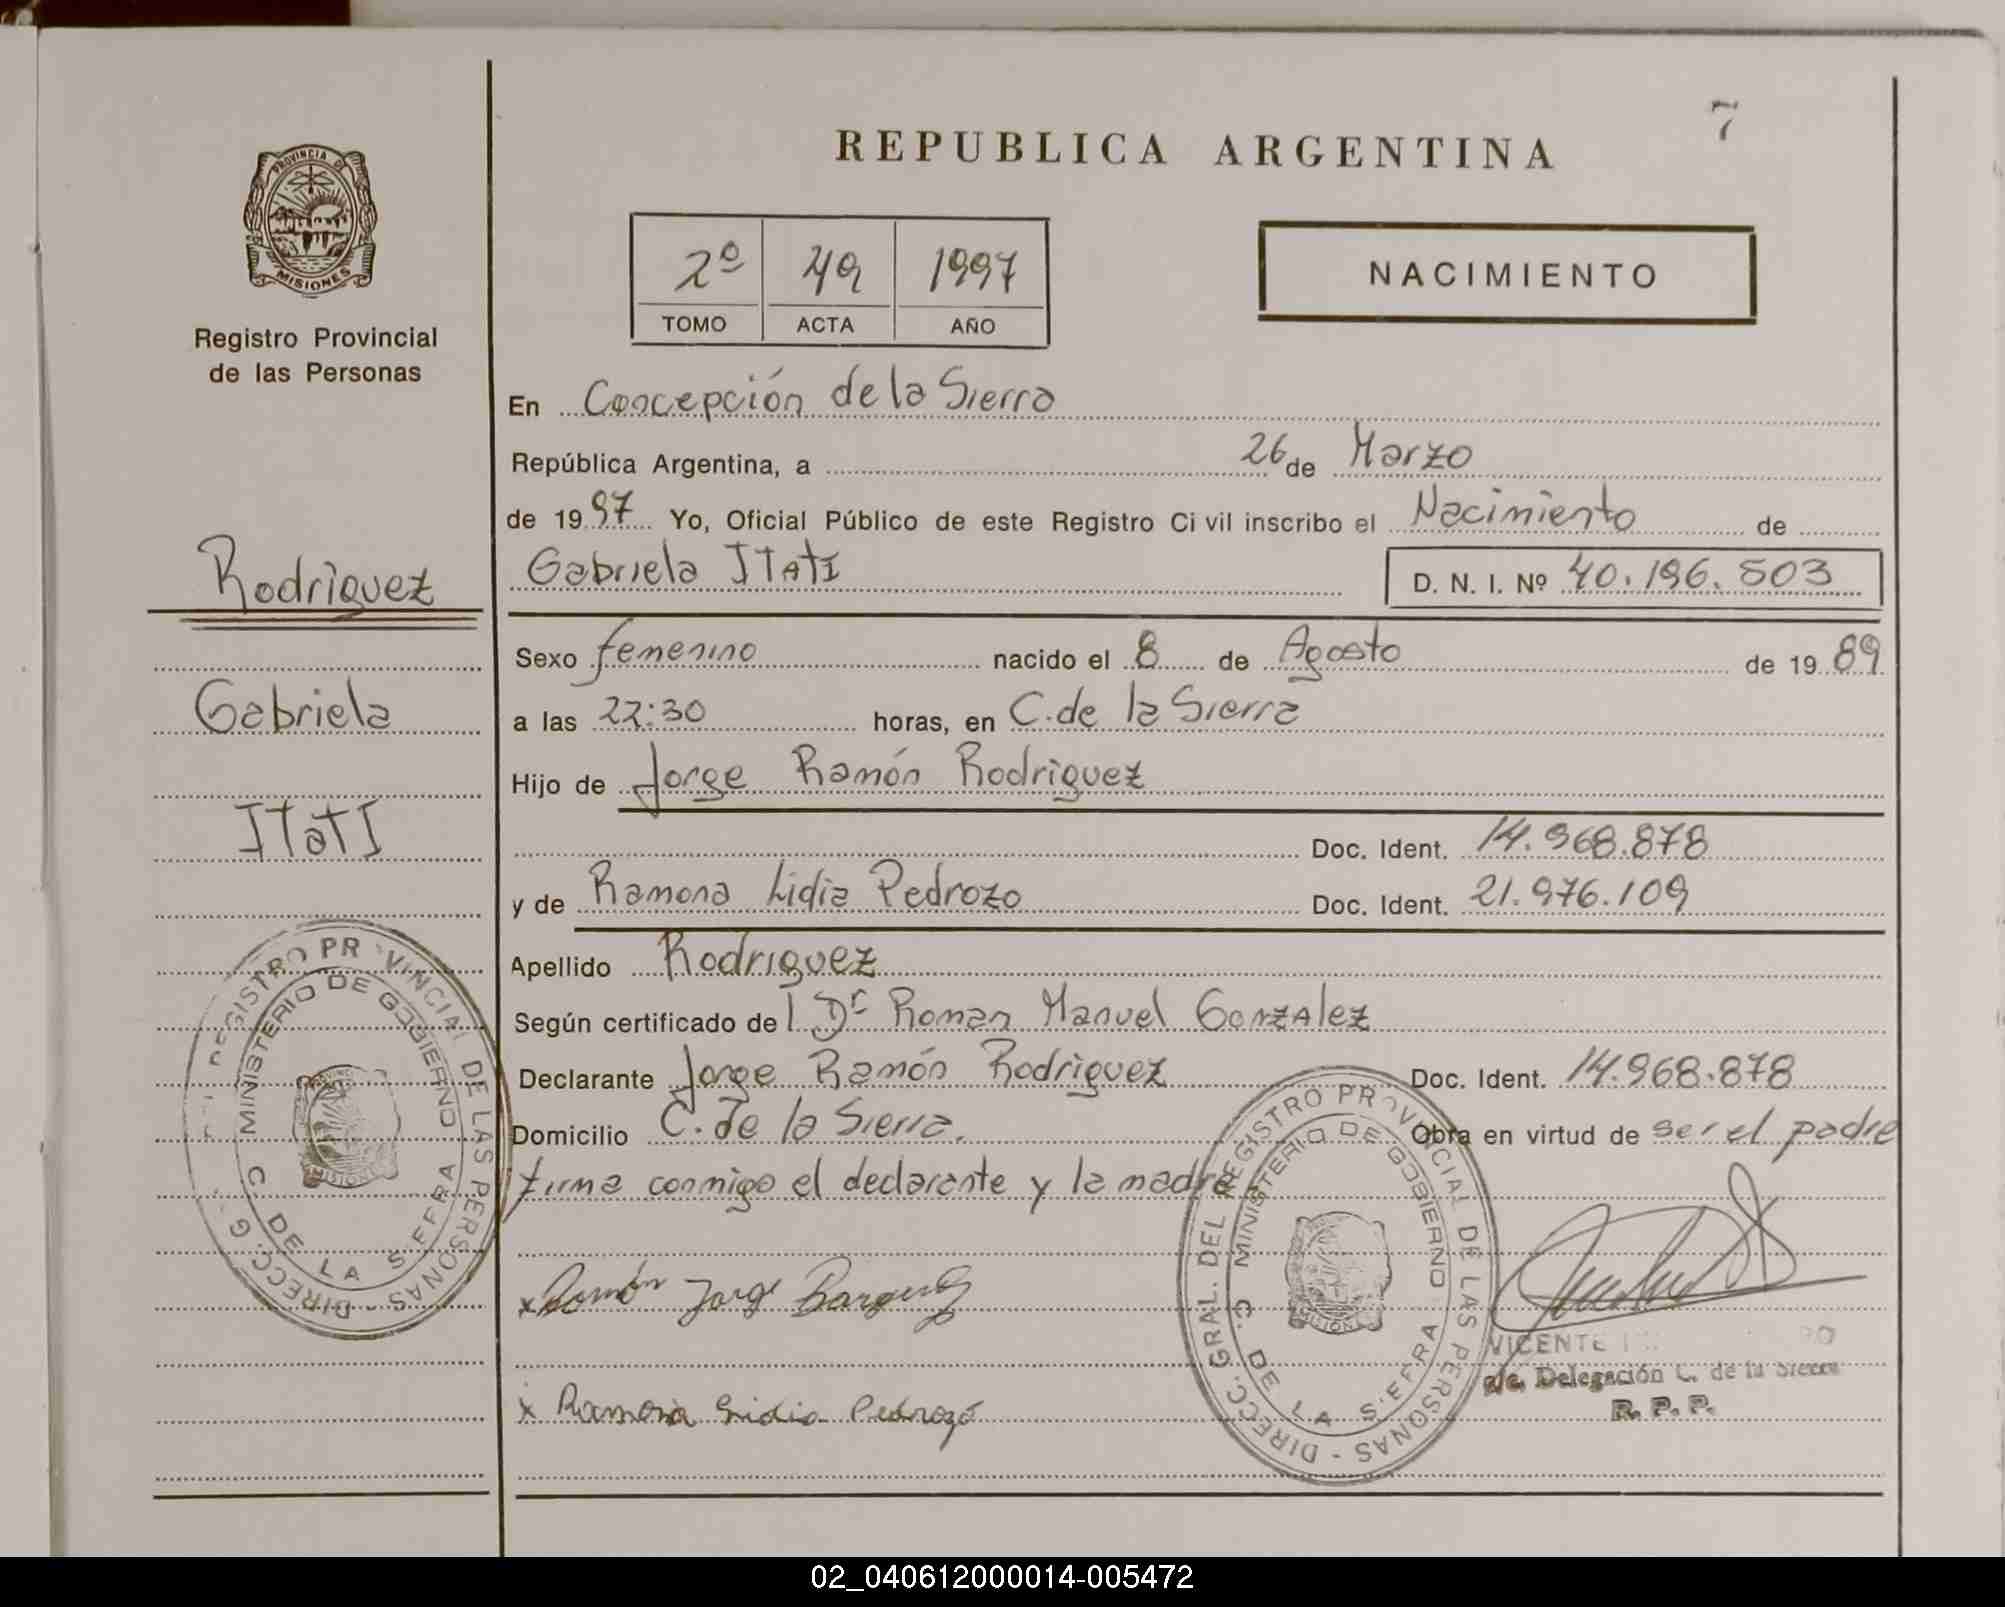 7
REPUBLICA ARGENTINA
PROVINCIA DE MISIONES
Registro Provincial
de las Personas
2º 49 1997
TOMO ACTA AÑO
NACIMIENTO
En Concepción de la Sierra
República Argentina, a 26 de Marzo
de 1997 Yo, Oficial Público de este Registro Ci vil inscribo el Nacimiento de
Gabriela ITatI D. N. I. Nº 40.196.503
Rodriguez
Gabriela
ITatI
Sexo femenino nacido el 8 de Agosto de 1989
a las 22:30 horas, en C. de la Sierra
Hijo de Jorge Ramón Rodriguez
Doc. Ident. 14.968.878
y de Ramona Lidia Pedrozo Doc. Ident. 21.976.109
Apellido Rodriguez
Según certificado del Dr Roman Manuel Gonzalez
Declarante Jorge Ramón Rodriguez Doc. Ident. 14.968.878
Domicilio C. de la Sierra. Obra en virtud de ser el padre
firma conmigo el declarante y la madre
x Ramón Jorge
x Ramona Lidia Pedrozo
DIRECC. GRAL. DEL REGISTRO PROVINCIAL DE LAS PERSONAS -
MINISTERIO DE GOBIERNO
C. DE LA SIERRA
DIRECC. GRAL. DEL REGISTRO PROVINCIAL DE LAS PERSONAS -
MINISTERIO DE GOBIERNO
C. DE LA SIERRA
VICENTE
a/c. Delegación C. de la Sierra
R. P. P.
02_040612000014-005472